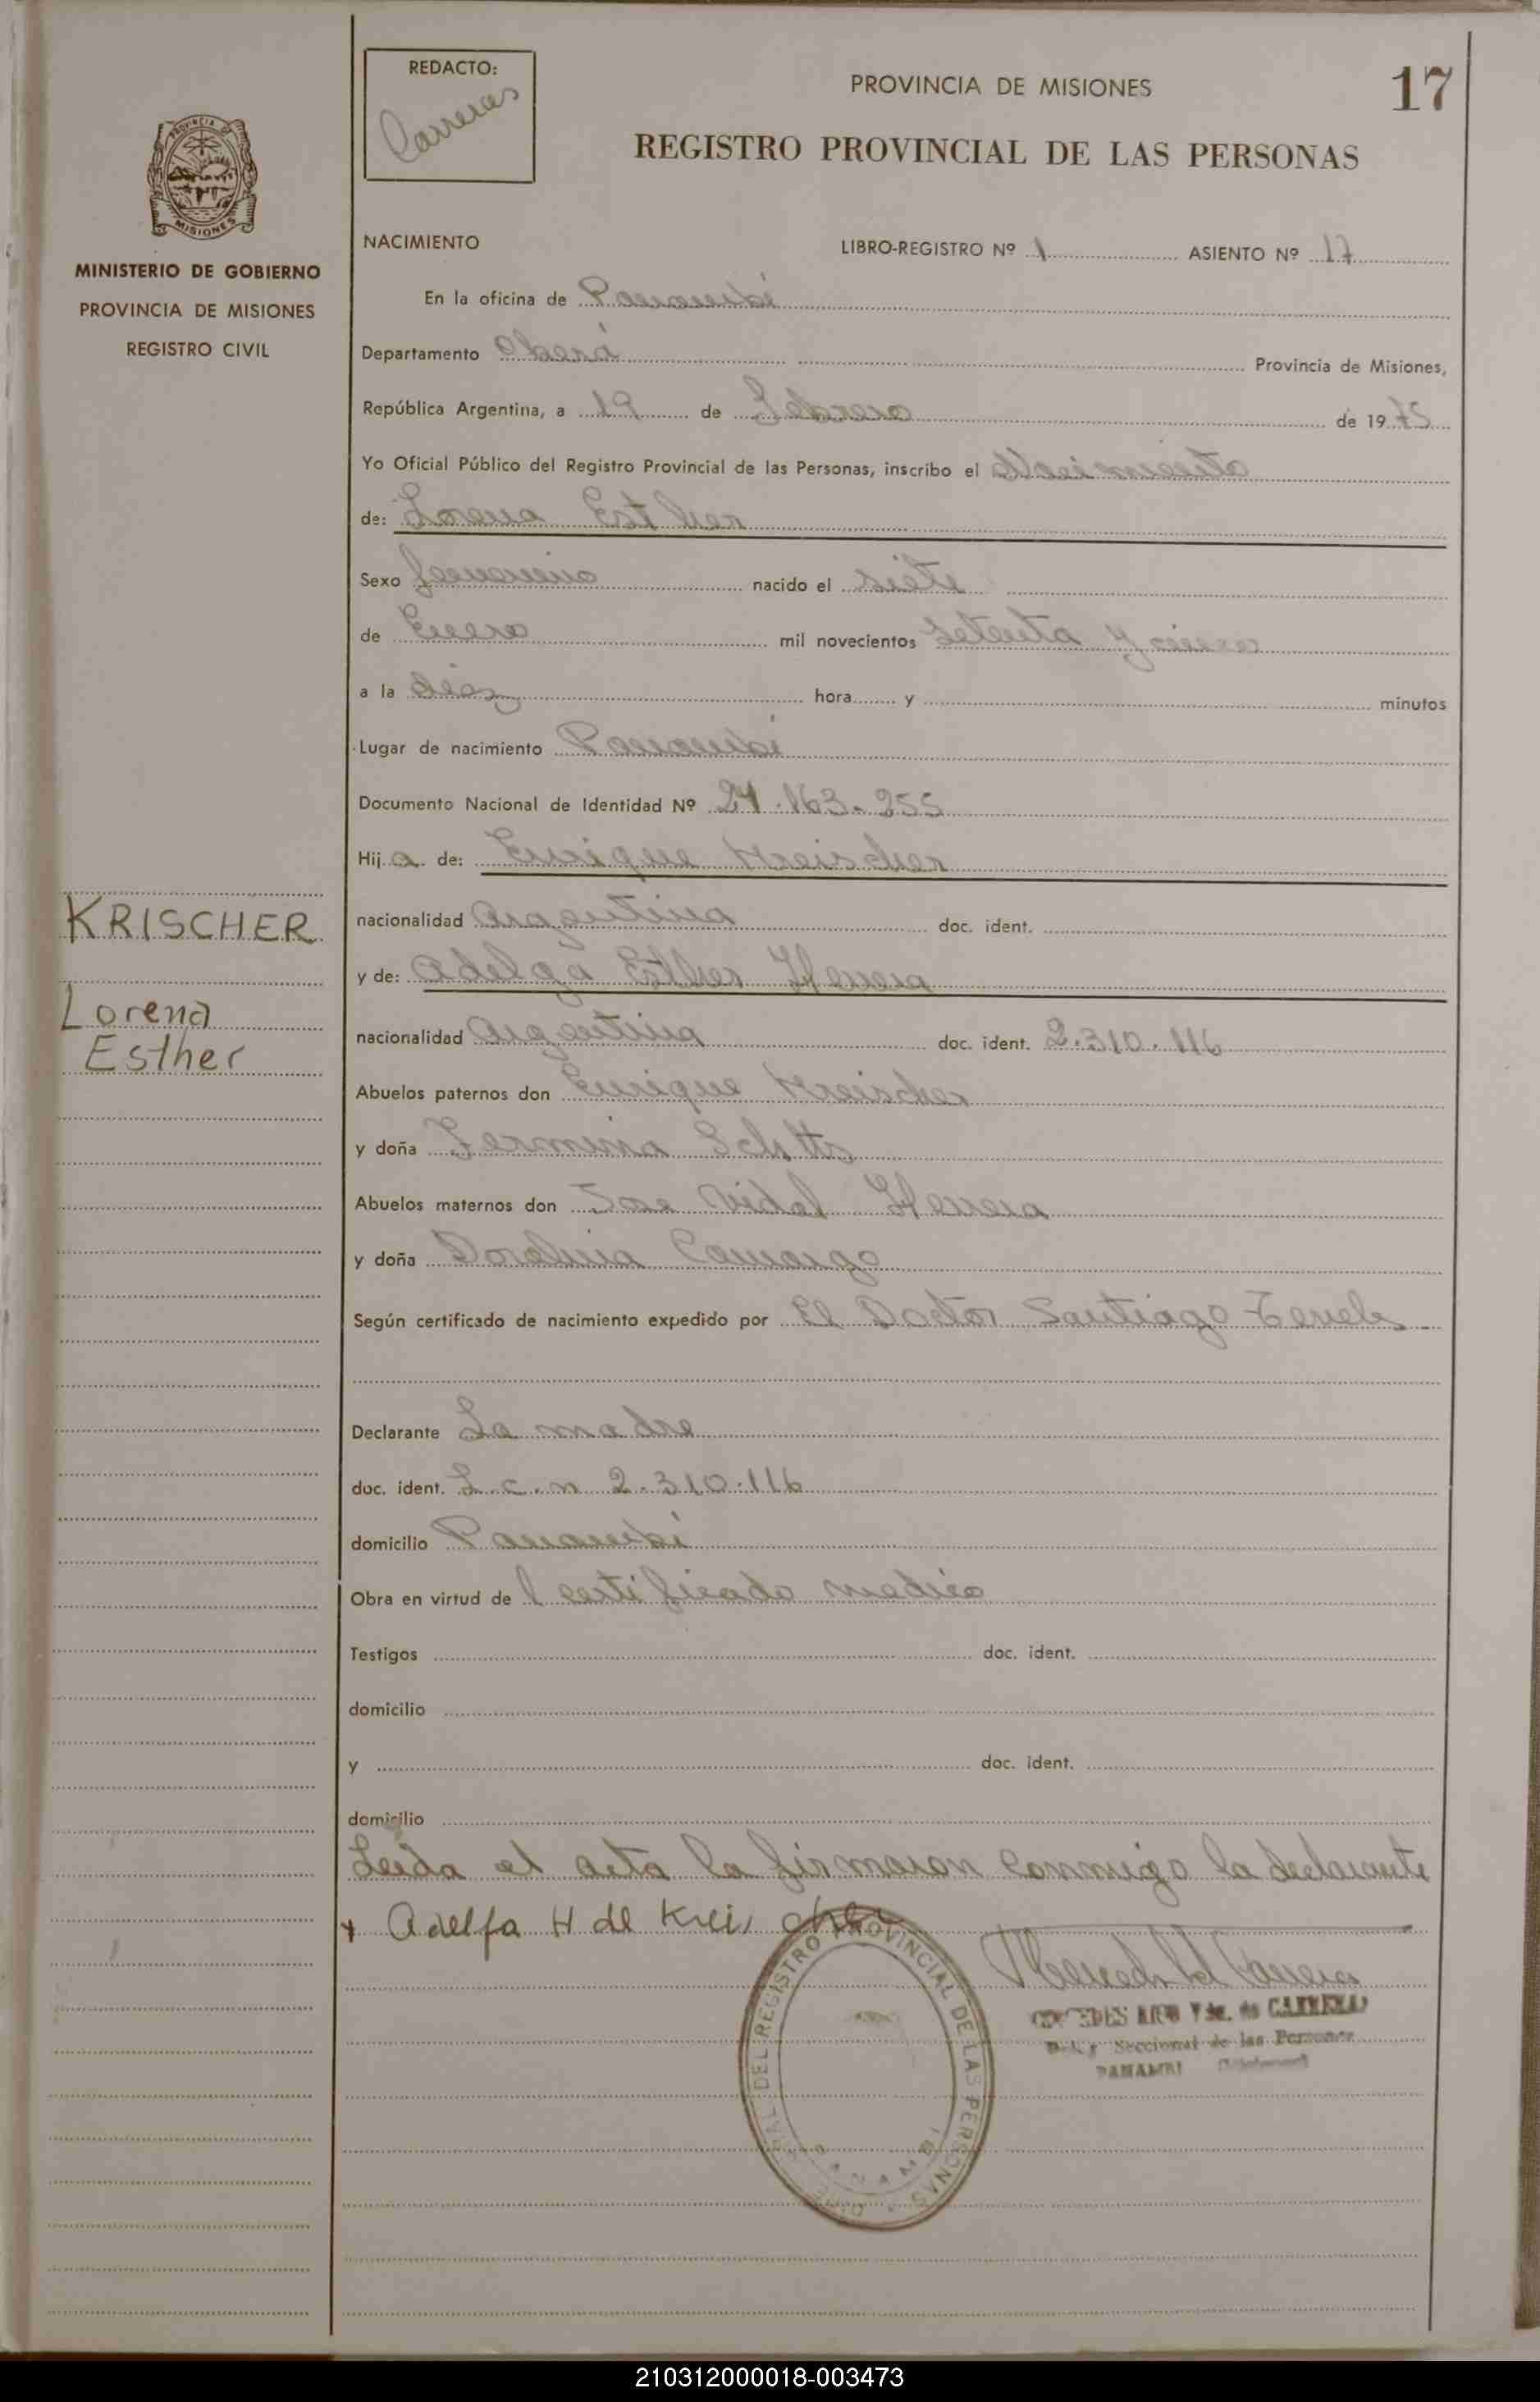 REDACTO:
Carreras
PROVINCIA DE MISIONES
17
REGISTRO PROVINCIAL DE LAS PERSONAS
PROVINCIA DE
MISIONES
MINISTERIO DE GOBIERNO
PROVINCIA DE MISIONES
REGISTRO CIVIL
NACIMIENTO
LIBRO-REGISTRO Nº 1 ASIENTO Nº 17
En la oficina de Panambí
Departamento Oberá Provincia de Misiones,
República Argentina, a 19 de Febrero de 1975
Yo Oficial Público del Registro Provincial de las Personas, inscribo el Nacimiento
de: Lorena Esther
Sexo femenino nacido el siete
de Enero mil novecientos setenta y cinco
a la diez hora y minutos
Lugar de nacimiento Panambí
Documento Nacional de Identidad Nº 24.163.255
Hija de: Enrique Kreischer
KRISCHER
nacionalidad Argentina doc. ident.
y de: Adelfa Esther Herrera
Lorena
Esther
nacionalidad Argentina doc. ident. 2.310.116
Abuelos paternos don Enrique Kreischer
y doña Fermina
Abuelos maternos don Jose Vidal Herrera
y doña Doralina Camargo
Según certificado de nacimiento expedido por El Doctor Santiago
Declarante La madre
doc. ident. L.c.n 2.310.116
domicilio Panambí
Obra en virtud de l certificado medico
Testigos doc. ident.
domicilio
y doc. ident.
domicilio
Leida el acta la firmaron conmigo la declarante
x Adelfa H de Kreischer
DEL REGISTRO PROVINCIAL DE LAS PERSONAS
PANAMBI
Vda. de CARRERAS
Seccional de las Personas
PANAMBI
210312000018-003473